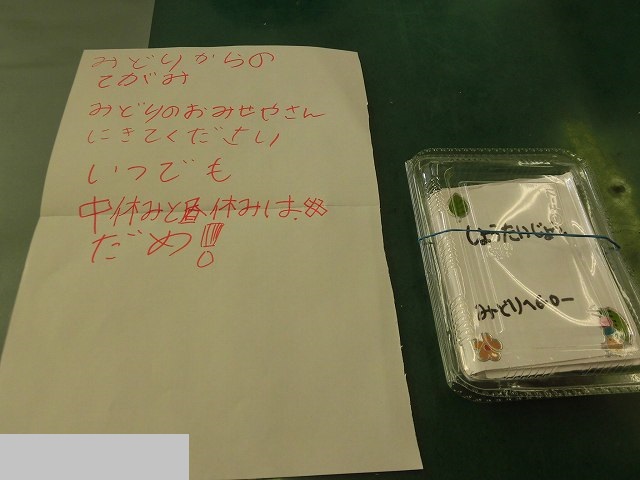 みどりからの
てがみ
みどりのおみせやさん
にきてください
いつでも
中休みと昼休みは
だめ!
しょうたいじょう
みどりへ